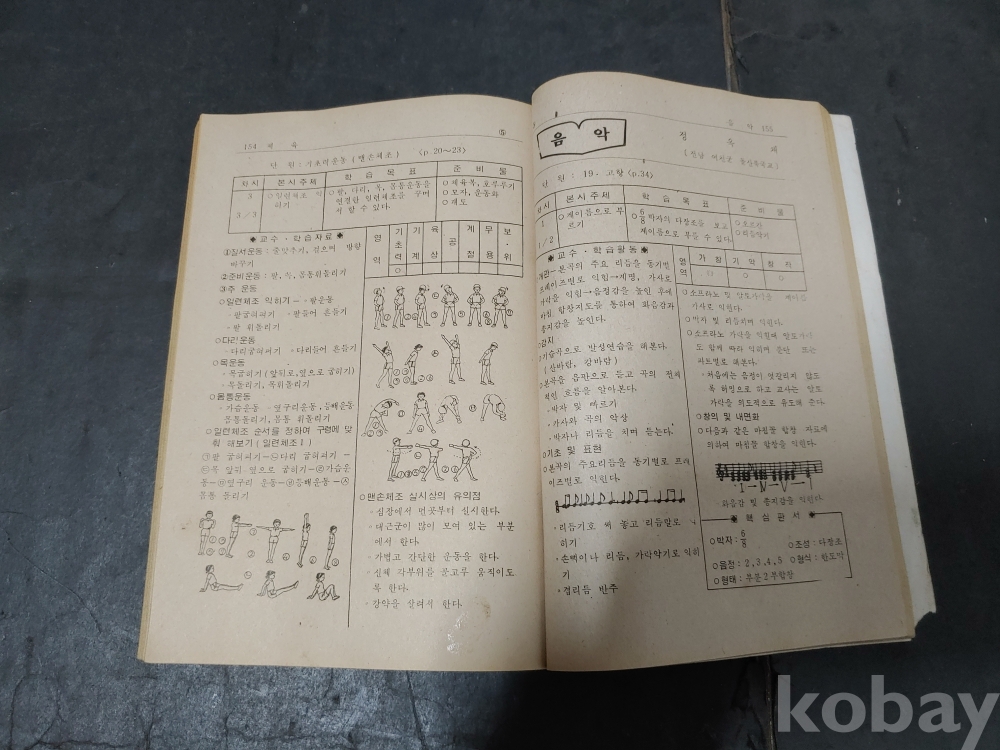 154 체 육
단 원 : 기초적운동 (맨손체조) 〈p.20~23〉
차시
본시주제
학 습 목 표
준 비 물
3
3/3
○일련체조 익
히기
○팔, 다리, 목, 몸통운동을
연결한 일련체조를 꾸며
서 할 수 있다.
○체육복, 호루루기
○모자, 운동화
○괘도
◉교수·학습자료◉
①질서운동 : 줄맞추기, 걸으며 방향
바꾸기
②준비운동 : 팔, 목, 몸통위돌리기
③주 운동
○일련체조 익히기 - 팔운동
·팔굽혀펴기 ·팔들어 흔들기
·팔 휘돌리기
○다리운동
·다리굽혀펴기 ·다리들어 흔들기
○목운동
·목굽히기(앞뒤로,옆으로 굽히기)
·목돌리기, 목휘돌리기
○몸통운동
·가슴운동 ·옆구리운동,등배운동
몸통돌리기, 몸통 휘돌리기
○일련체조 순서를 정하여 구령에 맞
춰 해보기(일련체조 I)
㉠팔 굽혀펴기-㉡다리 굽혀펴기-
㉢목 앞뒤 옆으로 굽히기-㉣가슴운
동-㉤옆구리 운동-㉥등배운동-㉦
몸통 돌리기
영 역
기초력
기계
육상
공
계절
무용
보·위
○
○맨손체조 실시상의 유의점
·심장에서 먼곳부터 실시한다.
·대근군이 많이 모여 있는 부분
에서 한다.
·가볍고 간단한 운동을 한다.
·신체 각부위를 골고루 움직이도
록 한다.
·강약을 살려서 한다.
음 악 155
음 악
정
단 원 : 19. 고향 〈p.34〉
차시
본시주제
학 습 목 표
준 비 물
1
1/2
○계이름으로 부
르기
○6/8박자의 다장조를 보고
계이름으로 부를 수 있다.
○오르간
○리듬악기
◉교수·학습활동◉
개관-본곡의 주요 리듬을 동기별
프레이즈별로 익힘→계명, 가사로
가락을 익힘→음정감을 높인 후에
마침 합창지도를 통하여 화음감과
종지감을 높인다.
○감지
○기습곡으로 발성연습을 해본다.
(산바람, 강바람)
○본곡을 음판으로 듣고 곡의 전체
적인 흐름을 알아본다.
·박자 및 빠르기
·가사와 곡의 악상
·박자나 리듬을 치며 듣는다.
○기초 및 표현
○본곡의 주요리듬을 동기별로 프레
이즈별로 익힌다.
·리듬기호 써 놓고 리듬말로
하기
·손뼉이나 리듬, 가락악기로 익히
기
·걸러듬 반주
영역
가 창
기 악
창 작
○
○
○
○소프라노 및 알토가락을 계이름
가사로 익힌다.
○박자 및 리듬치며 익힌다.
○소프라노 가락을 익힌후 알토가락
도 함께 따라 익히며 중단 또는
파트별로 해본다.
·처음에는 음정이 엇갈리지 않도
록 허밍으로 하고 교사는 알토
가락을 의도적으로 유도해 준다.
○창의 및 내면화
○다음과 같은 마침꼴 합창 자료에
의하여 마침꼴 합창을 익힌다.
I IV I V I
·화음감 및 종지감을 익힌다.
◉ 핵 심 판 서 ◉
○박자 : 6/8 ○조성 : 다장조
○음정 : 2,3,4,5 ○형식 : 한도막
○형태 : 부분2부합창
kobay